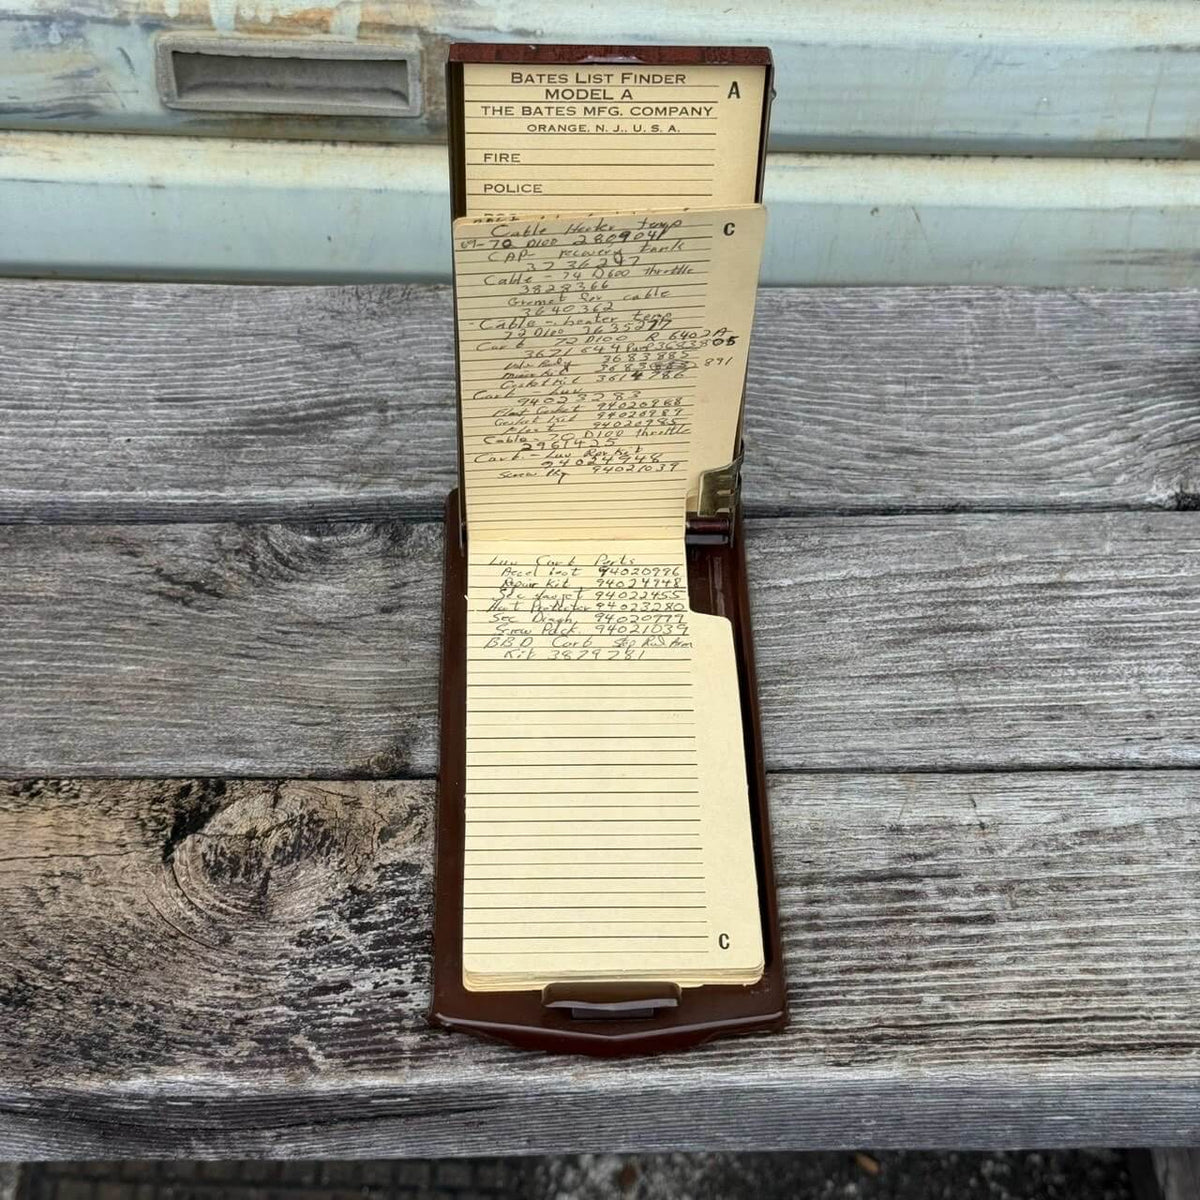 BATES LIST FINDER
MODEL A
THE BATES MFG. COMPANY
ORANGE, N. J., U. S. A.
A
FIRE
POLICE
Cable Heater temp
69-70 D100 2809041
C
CAP- recovery tank
3736297
Cable - 74 D600 throttle
3828366
Gromet for cable
3640362
- Cable - heater temp
72 D100 3635277
Carb 72 D100 R 6402A
3671644
3683885
891
Gasket Kit 3614786
Carb - Luv
94023283
Float Gasket 94020968
Gasket Kit 94020989
94020985
Cable - 70 D100 throttle
2961425
Carb - Luv Rpr Kit
94024948
Screw Pkg 94021039
Luv Carb Parts
Accel Boot 94020996
Repair Kit 94024948
94022455
Heat Protector 94023280
Sec Diaph 94020979
Screw Pack. 94021039
BBD Carb Arm
Kit 3879281
C